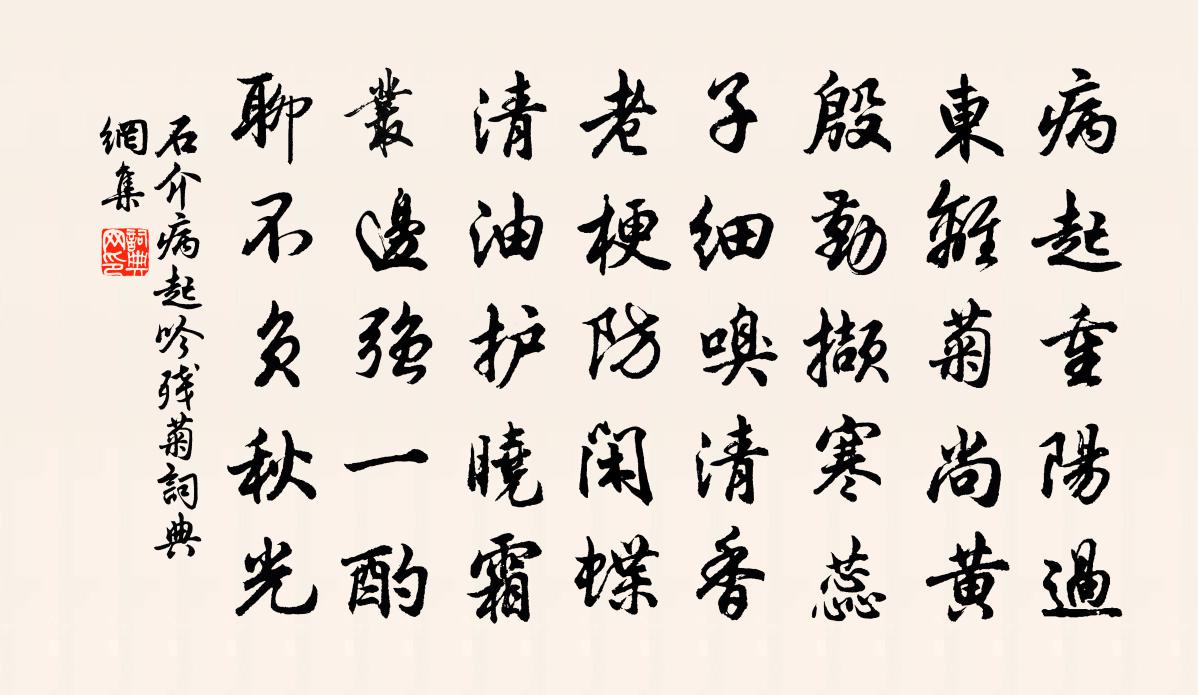 病起重陽過
東籬菊尚黄
殷勤擷寒蕊
子細嗅清香
老梗防閑蝶
清油护曉霜
叢邊强一酌
聊不負秋光
石介病起吟残菊詞典
網集
詞典
网印